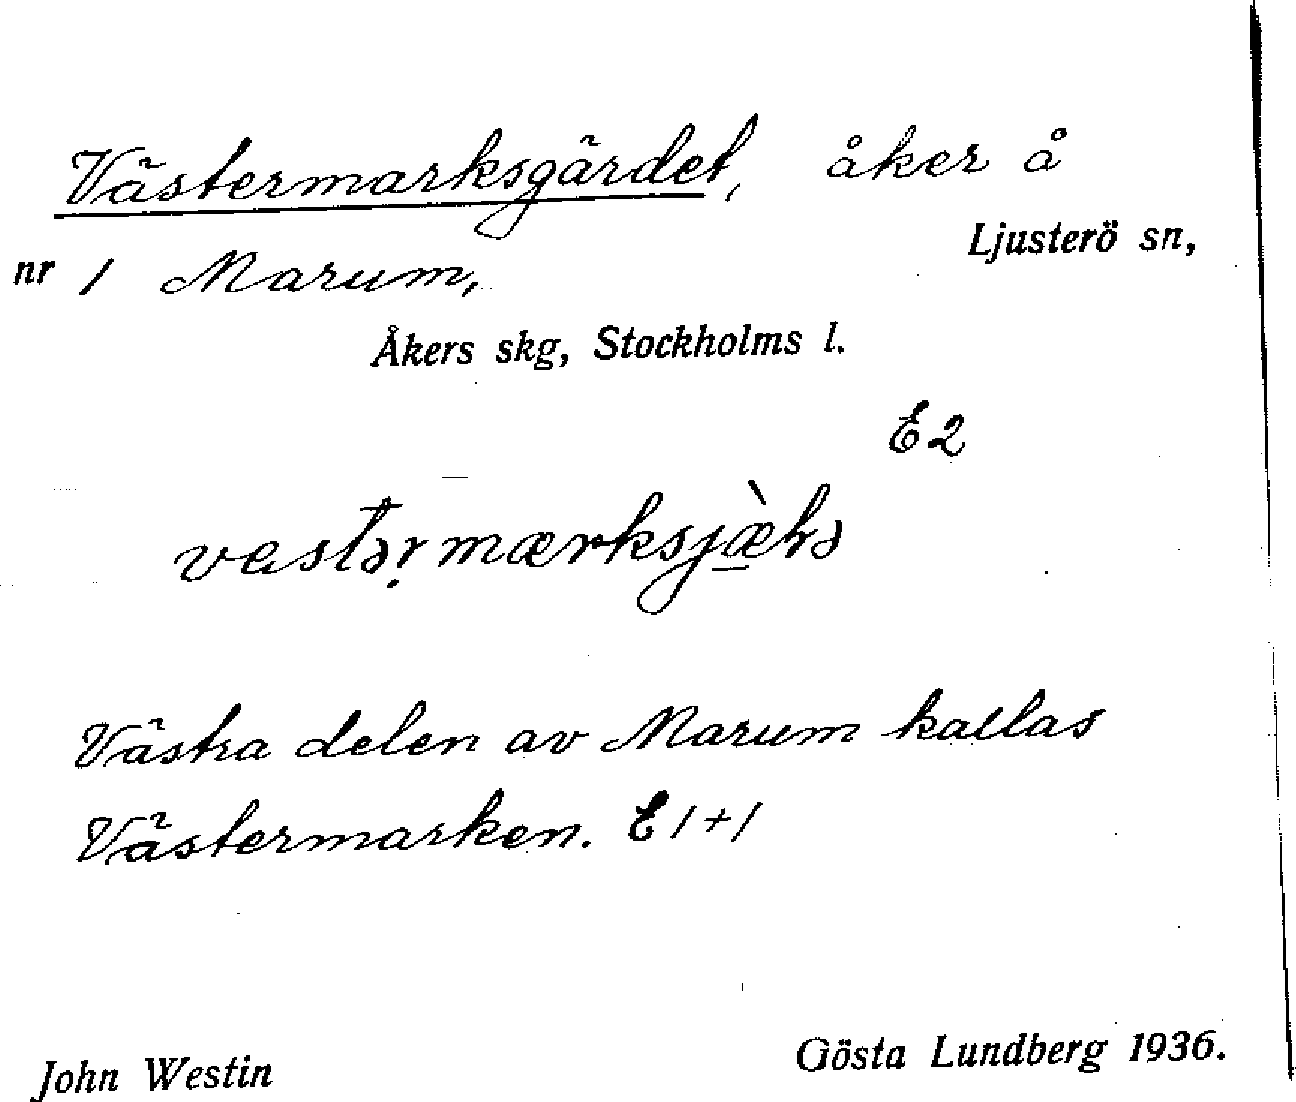 Västermarksgärdet, åker å
Ljusterö sn,
nr 1 Marum,
Åkers skg, Stockholms l.
E2
Västra delen av Marum kallas
Västermarken. E1+1
John Westin
Gösta Lundberg 1936.